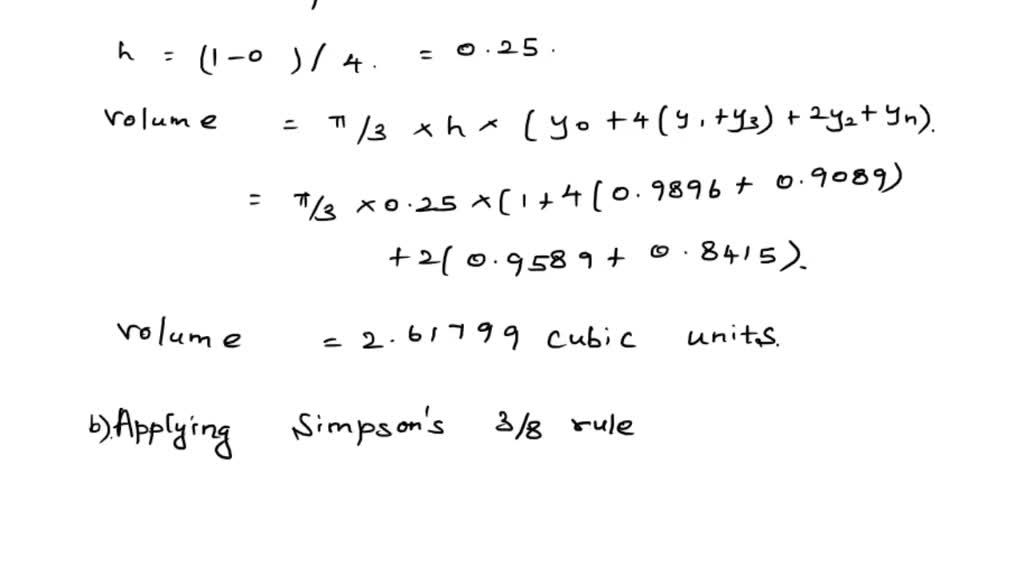 h = (1-0 )/ 4. = 0.25.
volume = π/3 x h x (y0 + 4(y1+y3) + 2y2+yn).
= π/3 x 0.25 x (1+4(0.9896 + 0.9089)
+2(0.9589+ 0.8415).
volume = 2.61799 cubic units.
b).Applying Simpson's 3/8 rule